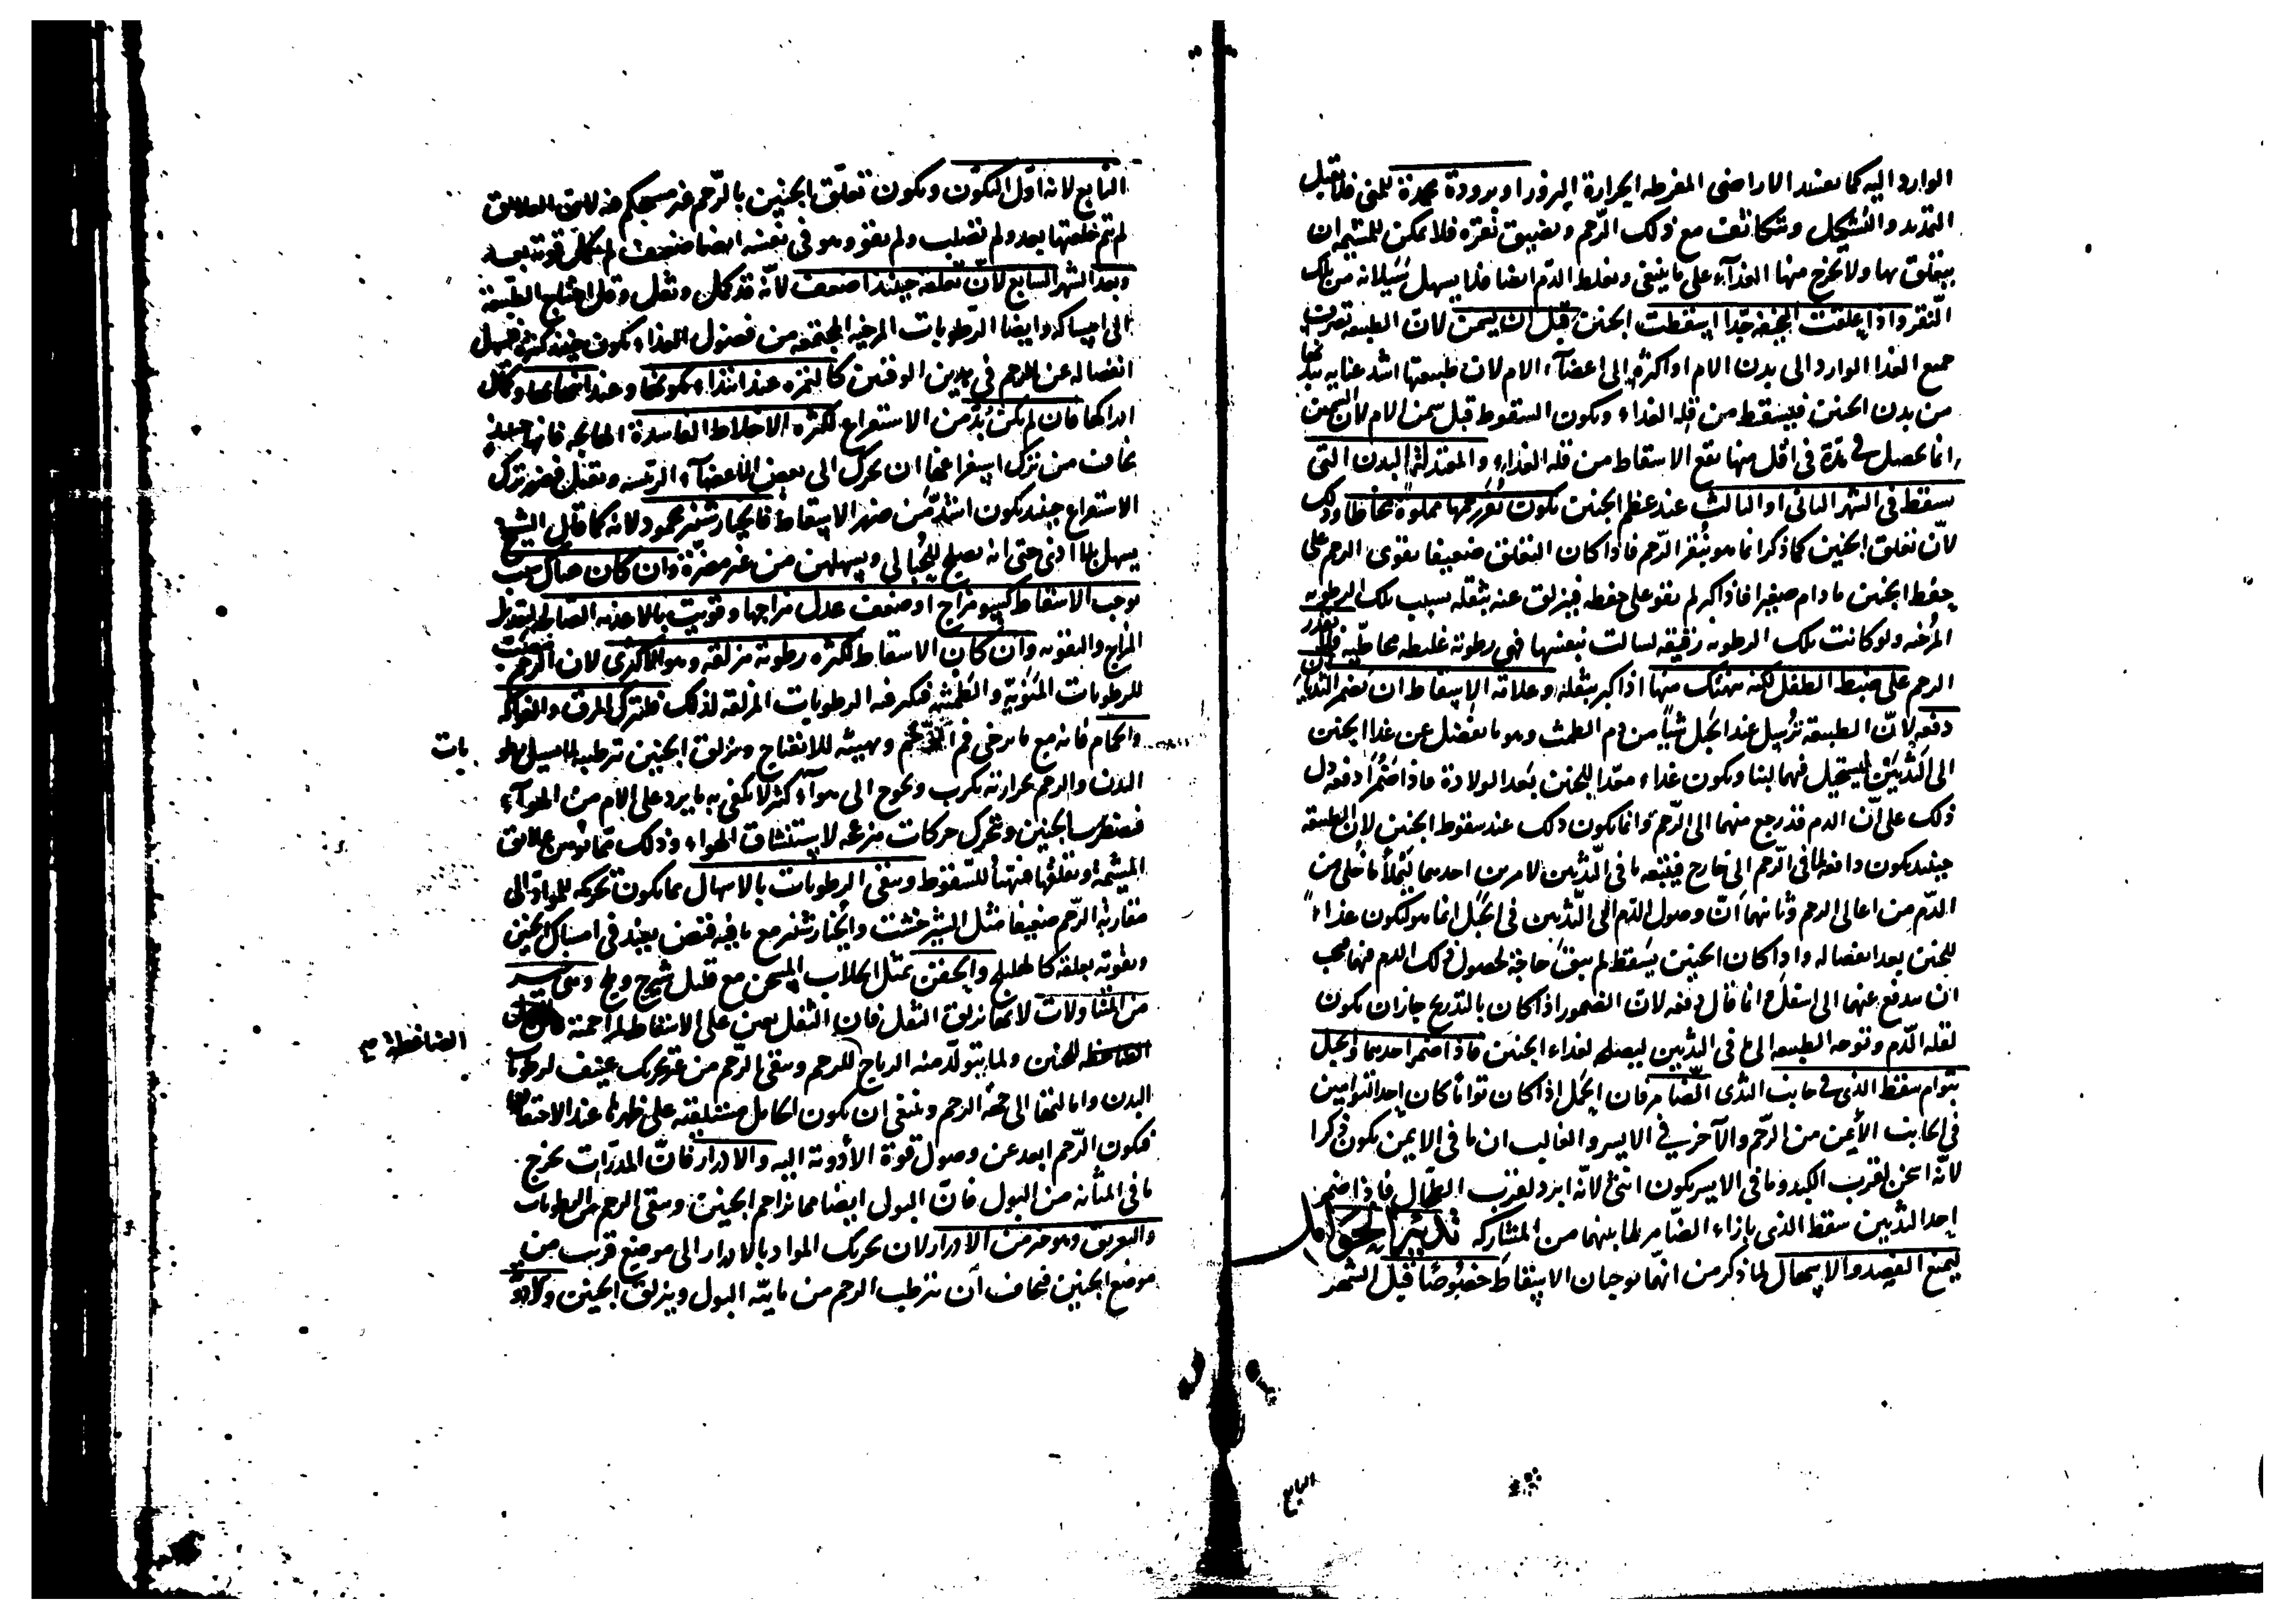 الوارد اليه كما يفسد الاراضى المفرطه الحرارة البزور او برودة مجمدة للمنى فلا يقبل
التمديد والتشكيل وتتكاثف مع ذلك الرحم ويضيق نقره فلا يمكن للمشيمه ان
يتعلق بها ولا يخرج منها الغذآء على ما ينبغى ويغلظ الدم ايضا فلا يسهل سيلانه من تلك
النقر واذا علقت النحيفه جدّا اسقطت الجنين قبل ان يسمن لان الطبيعه تصرف
جميع الغذا الوارد الى بدن الام او اكثره الى اعضآء الام لان طبيعتها اشد عنايه ببدنها
من بدن الجنين فيسقط من قله الغذاء ويكون السقوط قبل سمن الام لان السمن
انما يحصل فى مدّة فى اقل منها يقع الاسقاط من قله الغذاء والمعتدلة البدن التى
سقط فى الشهر الثانى او الثالث عند عظم الجنين يكون نقر رحمها مملوّة مخاطا وذلك
لانّ تعلق الجنين كما ذكر انما هو بنقر الرّحم فاذا كان التعلق ضعيفا يقوى الرحم على
حفظ الجنين مادام صغيرا فاذا كبر لم يقو على حفظه فينزلق عنه بثقله بسبب تلك الرطوبه
المزلقه ولو كانت تلك الرطوبه رقيقه لسالت بنفسها فهى رطوبة غليظه مخاطيه فلا يقدر
الرحم على ضبط الطفل لكنه ينهتك منها اذا كبر بثقله وعلامة الاسقاط ان يضمر الثديان
دفعه لانّ الطبيعه ترسل عند الحبل شيأ من دم الطمث وهو ما يفضل عن غذا الجنين
الى الثديين ليستحيل فيهما لبنا ويكون غذاء معدّا للجنين بعد الولادة فاذا ضمرا دفعه دل
ذلك على انّ الدم قد رجع منهما الى الرّحم وانما يكون ذلك عند سقوط الجنين لان الطبيعه
حينئذ يكون دافعة لما فى الرّحم الى خارج فيتبعه ما فى الثديين لامرين احدهما ليملأ ما خلى من
الدّم من اعالى الرحم وثانيهما انّ وصول الدّم الى الثديين فى الحبل انما هو ليكون غذاءً
للجنين بعد انفصاله واذا كان الجنين يسقط لم يبق حاجة لحصول ذلك الدم فيهما فيجب
ان يندفع عنهما الى اسفل وانما قال دفعه لان الضمور اذا كان بالتدريج جاز ان يكون
لقله الدّم وتوجه الطبيعه الى ما فى الثديين ليصله لغذاء الجنين فاذا ضمر احدهما والحبل
بتوام سقط الذى فى جانب الثدى الضامر فان الحبل اذا كان توأما كان احد التوأمين
فى الجانب الأيمن من الرّحم والآخر فى الايسر والغالب ان ما فى الايمن يكون ذكرا
لانّه اسخن لقرب الكبد وما فى الايسر يكون انثى لأنّه ابرد لقرب الطحال فاذا ضمر
احد الثديين سقط الذى بازاء الضّامر لما بينهما من المشاركه تدبير الحوامل
يمنع الفصد والاسهال لما ذكر من انّهما يوجبان الاسقاط خصوصًا قبل الشهر
الرابع
الرابع لانه اوّل التكوّن ويكون تعلّق الجنين بالرّحم غير مستحكم فيه لان العلائق
لم تتم خلقتها بعد ولم تصلب ولم تقو وهو فى نفسه ايضا ضعيف لم تكمل قوته بعد
وبعد الشهر السابع لانّ تعلقه حينئذ اضعف لانّه قد كمل وثقل وقلّ احتياج الطبيعة
الى امساكه وايضا الرّطوبات المرخيه المجتمعه من فضول الغذاء يكون حينئذ كثيرة فيسهل
انفصاله عن الرحم فى هذين الوقتين كالثمره عند ابتداء تكونها وعند انتهائها وكمال
ادراكها فان لم يكن بُدّ من الاستفراغ لكثره الاخلاط الفاسدة الهائجه فانها حينئذ
يخاف من ترك استفراغها ان يتحرك الى بعض الاعضآء الرئيسه ويقتل فضرر ترك
الاستفراغ حينئذ يكون اشدّ من ضرر الاسقاط فالخيار شنبر محمود لانه كما قال الشيخ
يسهل بلا اذى حتى انه يصلح للحُبالى ويسهلهن من غير مضرّة وان كان هناك سبب
يوجب الاسقاط كسوء مزاج او ضعف عدل مزاجها وقويت بالاغذيه الصالحه لتعديل
المزاج والتقويه وان كان الاسقاط لكثره رطوبة مزلقه وهو الاكثرى لان الرحم مصبّ
للرطوبات المنويّة والطمثيّه فيكثر فيه الرطوبات المزلقه لذلك فليترك المرق والفواكه
والحمام فانه مع ما يرخى فم الرحم ويهيئه للانفتاح ويزلق الجنين ترطيبه لما يسيل رطو
بات
البدن والرحم بحرارته يكرب ويحوج الى هوآء كثير لا يكفى به ما يرد على الام من الهوآء
فيضطرب الجنين ويتحرك حركات مزعجه لاستنشاق الهواء وذلك مما يوهن علائق
المشيمة وتعلقها فيتهيأ للسقوط وينقى الرطوبات بالاسهال بما يكون تحريكه للمواد الى
مقاربة الرّحم ضعيفا مثل الشيرخشت والخيار شنبر مع ما فيه قبض يفيد فى امساك الجنين
وتقويه تعلقه كالهليلج والحقن بمثل الجلاب المسخن مع قليل شيرج وملح وهى خير
من المتناولات لانها تزلق الثفل فان الثفل يعين على الاسقاط لمزاحمة
الضاغطة للجنين ولما يتولّد منه الرياح للرحم وينقى الرّحم من غير تحريك عنيف لرطوبات
الضاغطة صح
البدن وامالتها الى جهة الرحم وينبغى ان يكون الحامل مستلقيه على ظهرها عند الاحتقان
فيكون الرّحم ابعد عن وصول قوة الأدوية اليه والادرار فانّ المدرّات يخرج
ما فى المثانه من البول فانّ البول ايضا مما يزاحم الجنين وينقى الرحم من الرطوبات
والتعريق وهو خير من الادرار لان تحريك المواد بالادرار الى موضع قريب من
موضع الجنين فيخاف أن يترطب الرحم من مائيّه البول وينزلق الجنين